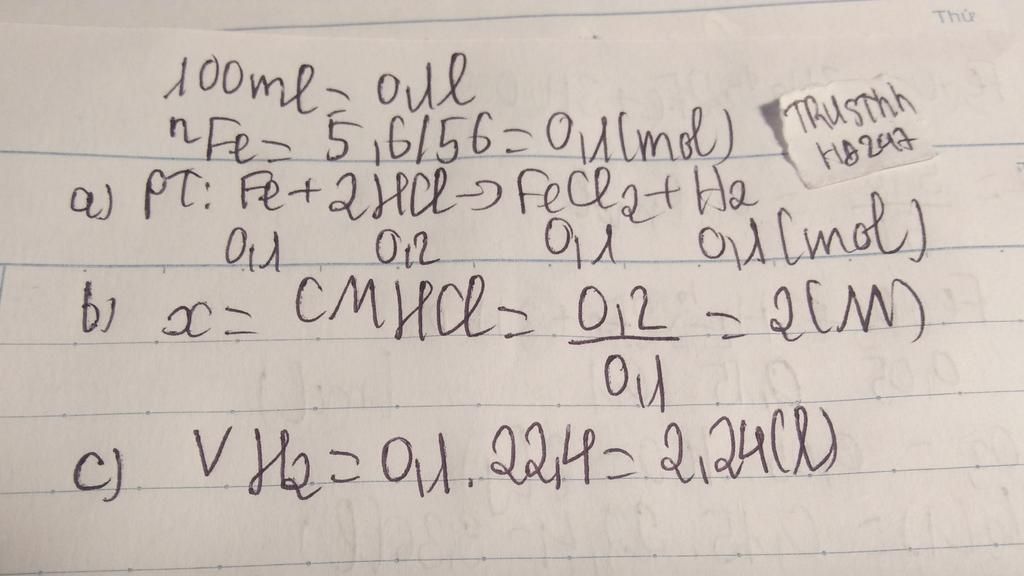 Thứ
100ml = 0,1l
nFe = 5,6/56 = 0,1(mol)
TRUSTnh
HB247
a) PT: Fe + 2HCl -> FeCl2 + H2
0,1 0,2 0,1 0,1(mol)
b) x = CMHCl = 0,2/0,1 = 2(M)
c) VH2 = 0,1.22,4 = 2,24(l)